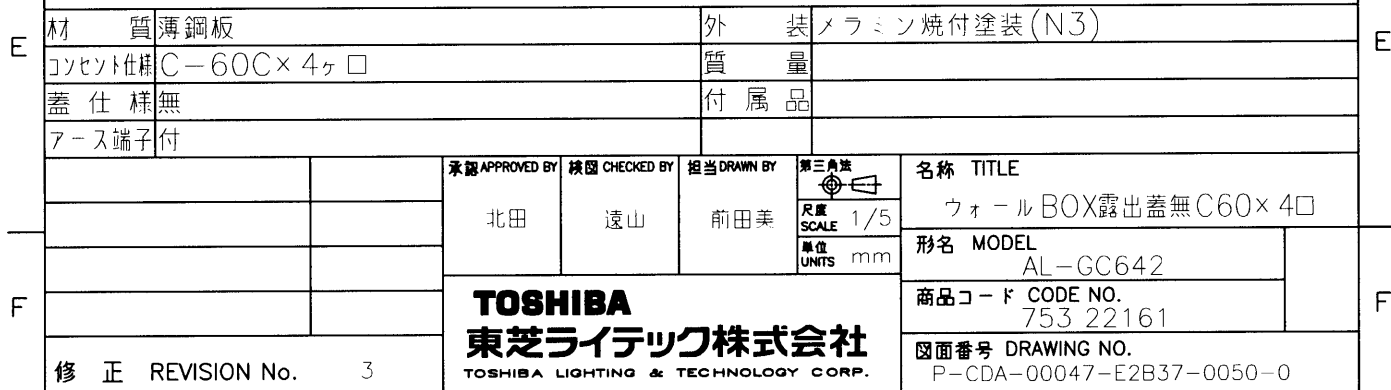 材 質 薄鋼板 外 装 メラミン焼付塗装(N3)
コンセント仕様 C-60C×4ヶ口 質 量
蓋 仕 様 無 付 属 品
アース端子 付
E
E
承認 APPROVED BY 検図 CHECKED BY 担当 DRAWN BY 第三角法
北田 遠山 前田美
尺度 SCALE 1/5
単位 UNITS mm
名称 TITLE
ウォールBOX露出蓋無C60×4口
形名 MODEL
AL-GC642
商品コード CODE NO.
753 22161
図面番号 DRAWING NO.
P-CDA-00047-E2B37-0050-0
TOSHIBA
東芝ライテック株式会社
TOSHIBA LIGHTING & TECHNOLOGY CORP.
修 正 REVISION No. 3
F
F